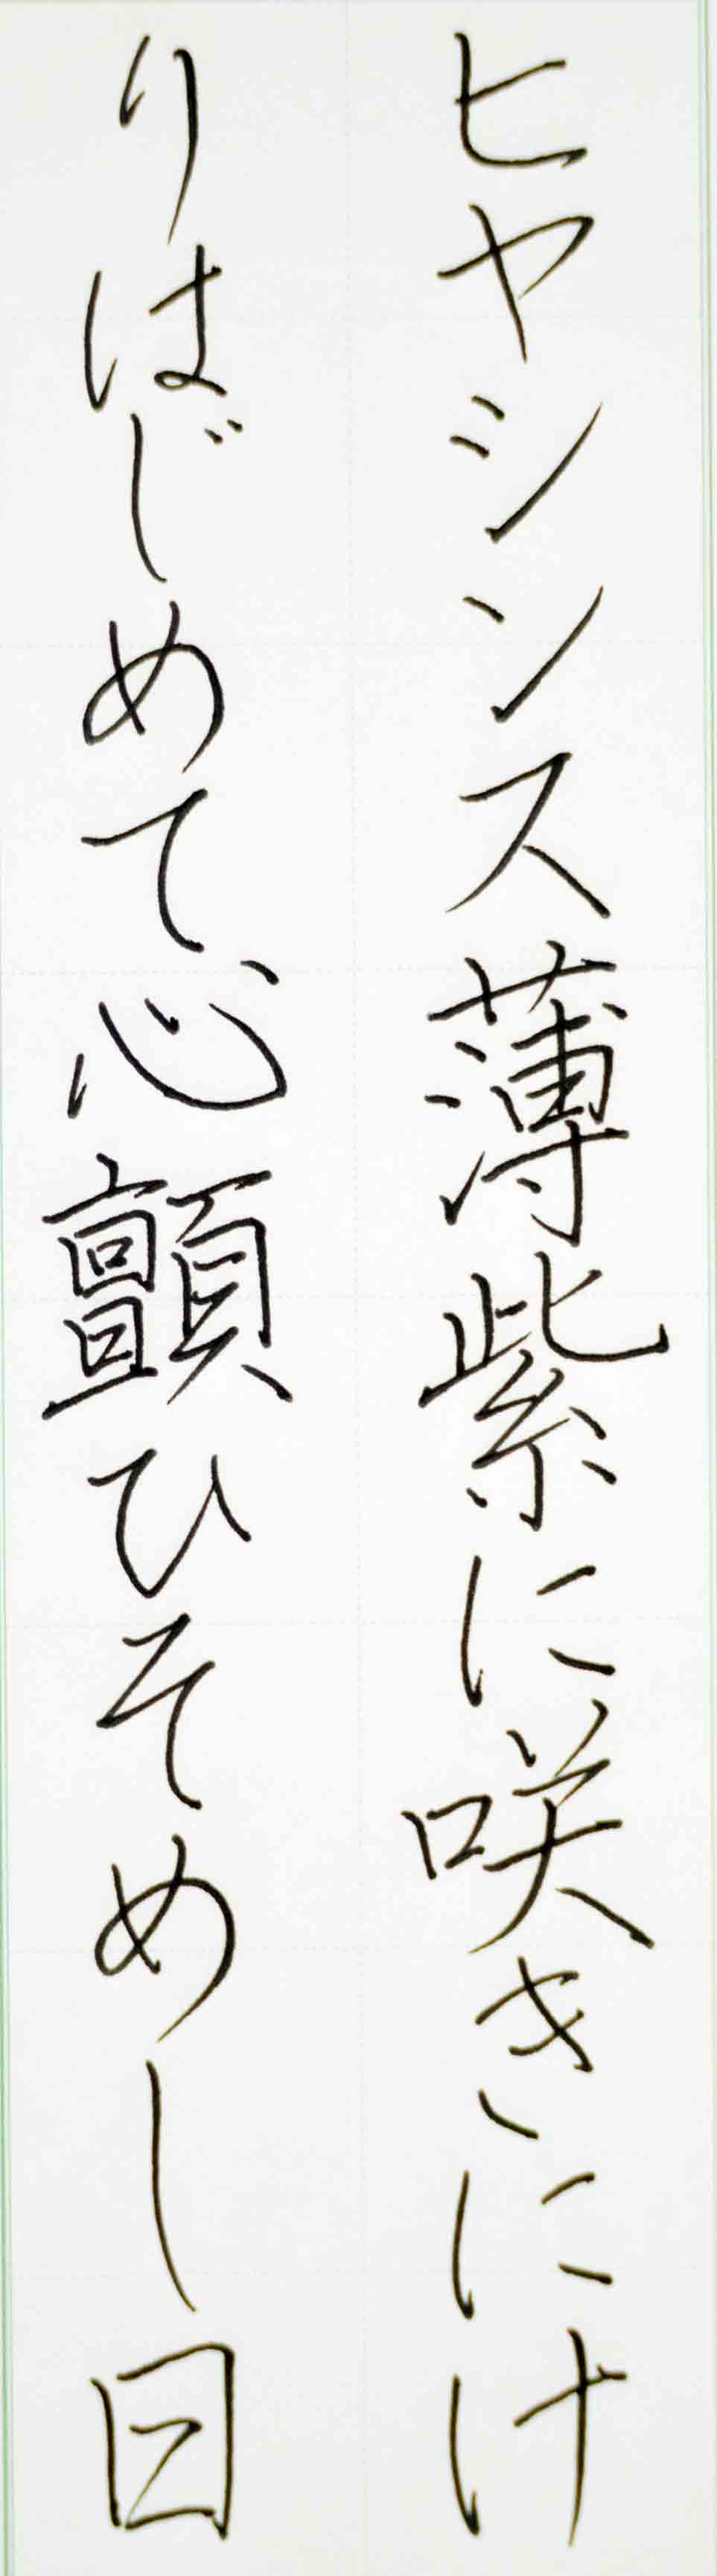 ヒヤシンス薄紫に咲きにけ
りはじめて心顫ひそめし日